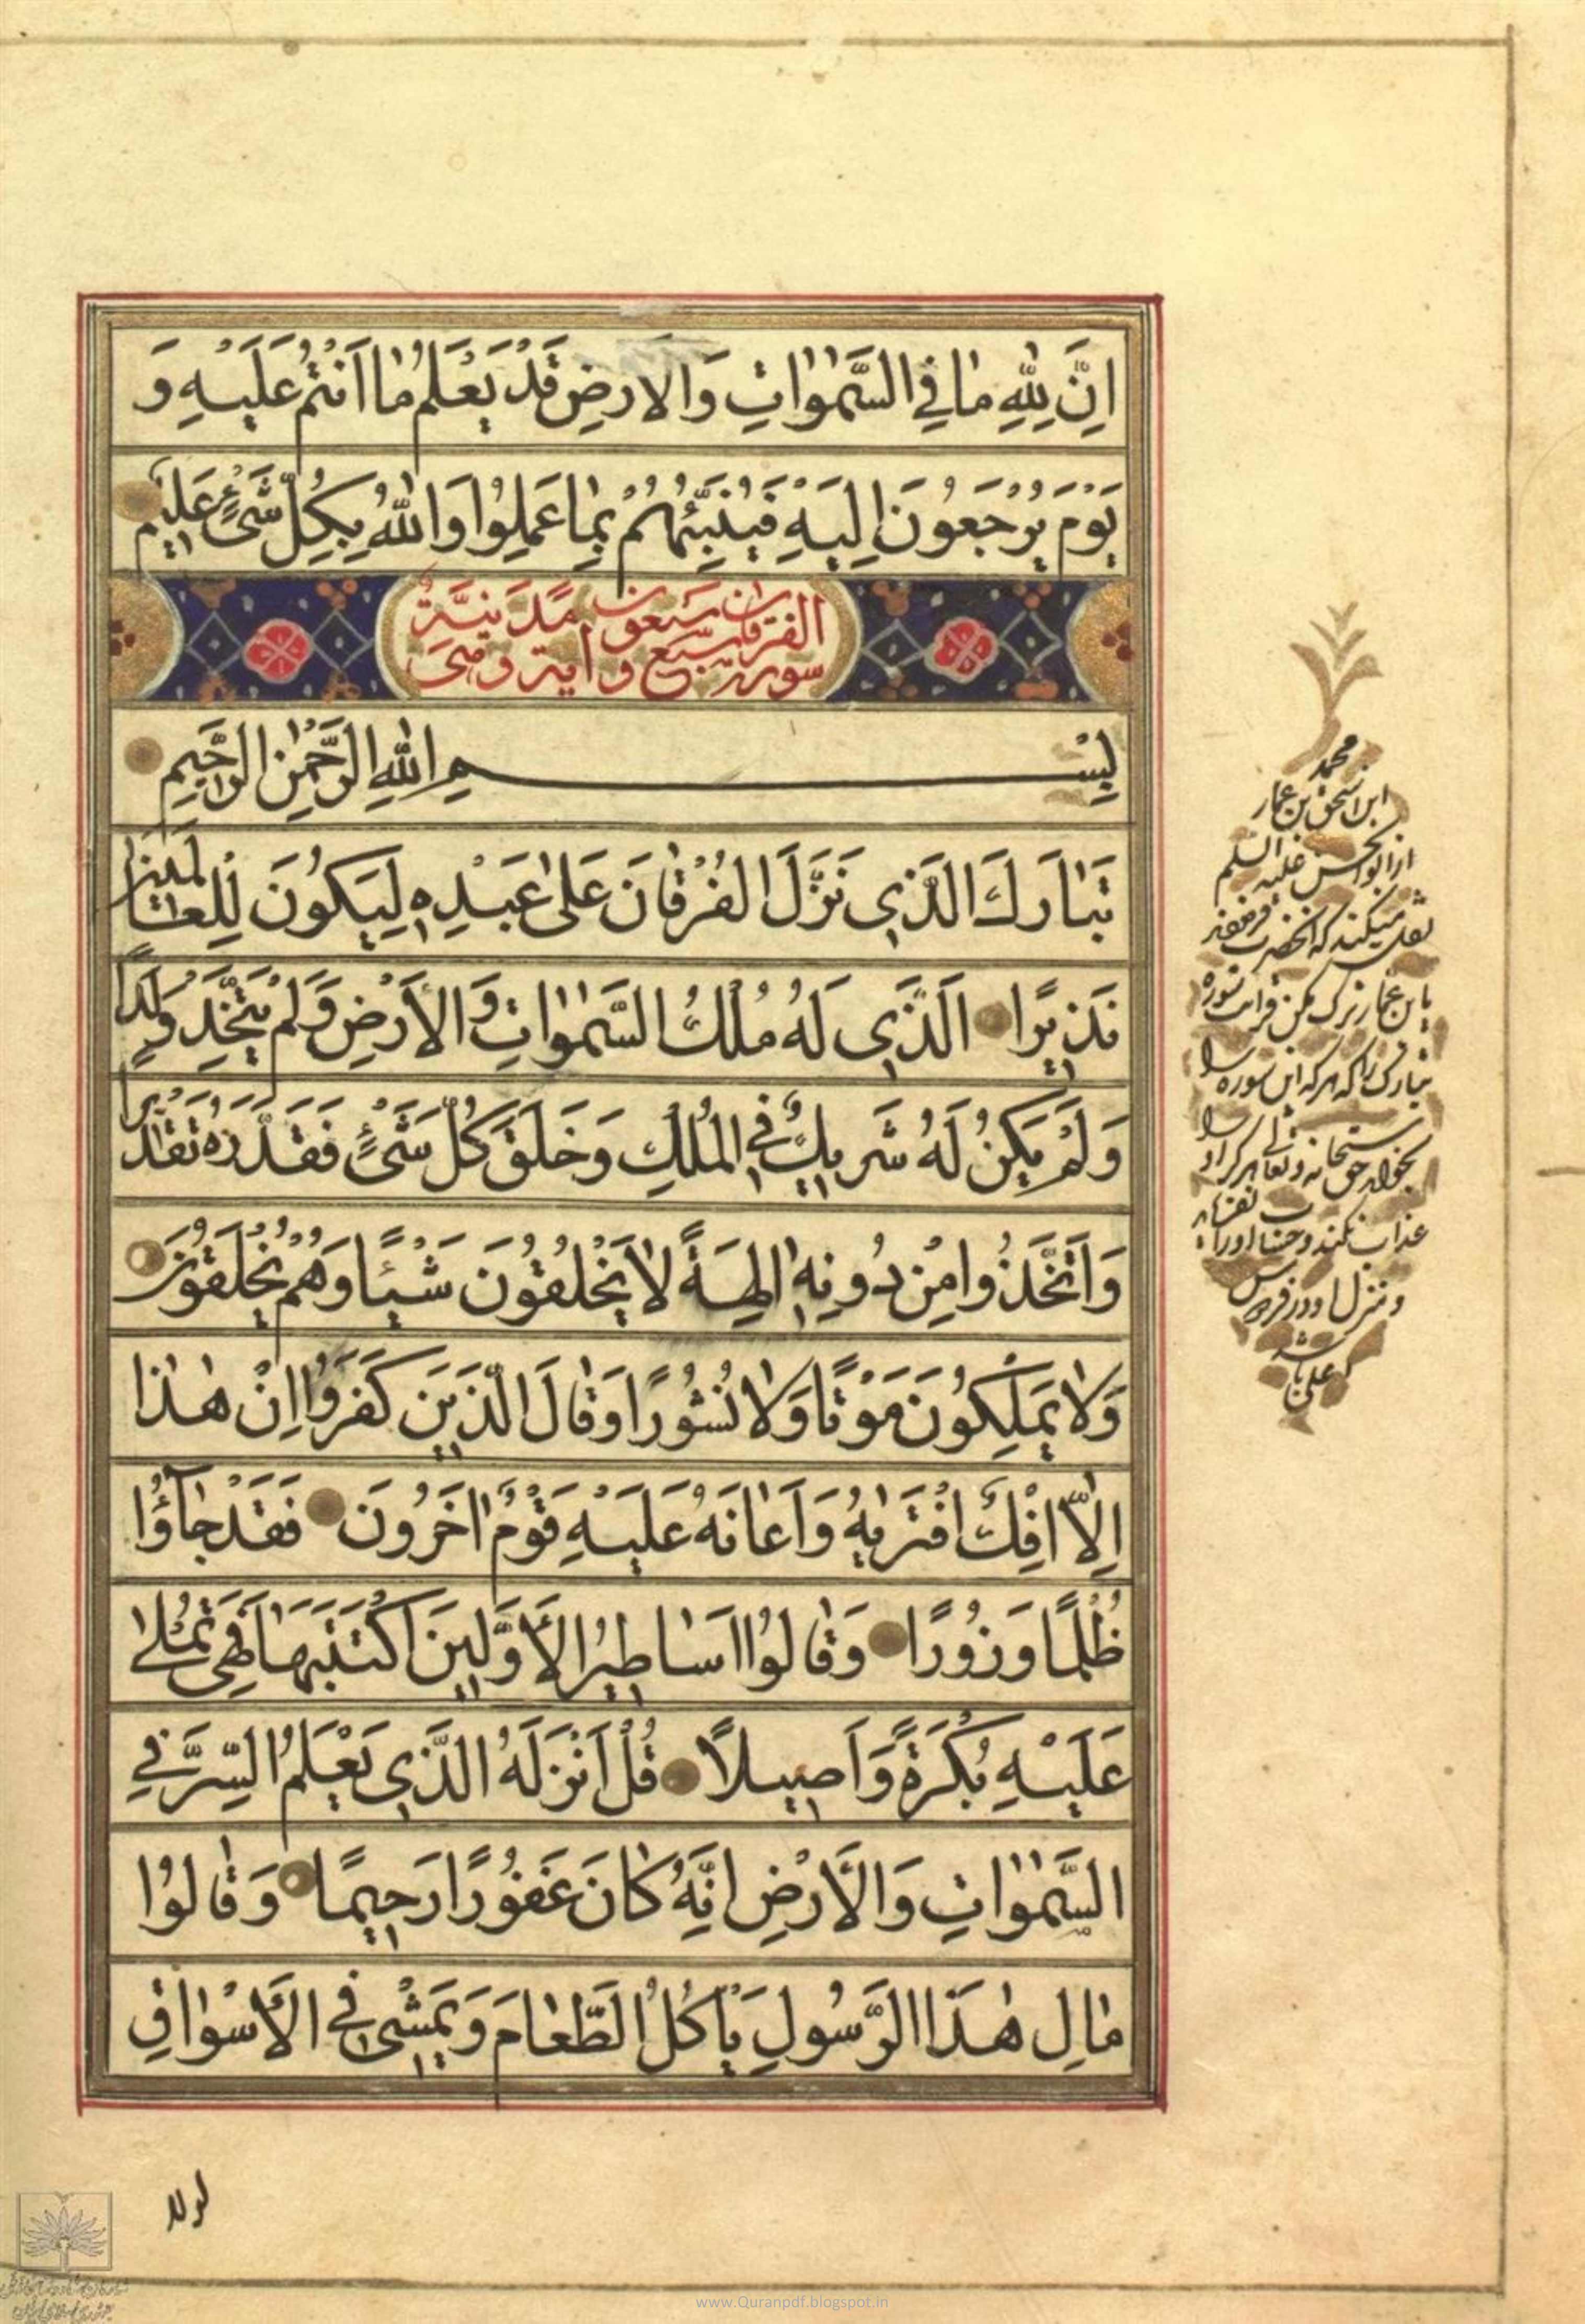 اِنَّ لِلّٰهِ مٰا فِي السَّمٰوٰاتِ وَالاَرضِ قَدْ يَعْلَمُ مٰا اَنْتُمْ عَلَيْهِ وَ
يَوْمَ يُرْجَعُونَ اِلَيْهِ فَيُنَبِّئُهُمْ بِمٰا عَمِلُوا وَاللّٰهُ بِكُلِّ شَىْءٍ عَلِيمٌ
سورة الفرقان سبع و سبعون اية و هى مَدَنِيَّةٌ
بِسْمِ اللّٰهِ الرَّحْمٰنِ الرَّحِيمِ
تَبٰارَكَ الَّذِي نَزَّلَ الْفُرْقٰانَ عَلىٰ عَبْدِهِ لِيَكُونَ لِلْعٰالَمِينَ
نَذِيرًا الَّذِي لَهُ مُلْكُ السَّمٰوٰاتِ وَالْأَرْضِ وَلَمْ يَتَّخِذْ وَلَدًا
وَلَمْ يَكُنْ لَهُ شَرِيكٌ فِي الْمُلْكِ وَخَلَقَ كُلَّ شَىْءٍ فَقَدَّرَهُ تَقْدِيرًا
وَاتَّخَذُوا مِنْ دُونِهِ اٰلِهَةً لاٰ يَخْلُقُونَ شَيْئًا وَهُمْ يُخْلَقُونَ
وَلاٰ يَمْلِكُونَ مَوْتًا وَلاٰ نُشُورًا وَقٰالَ الَّذِينَ كَفَرُوا اِنْ هٰذٰا
اِلاّٰ اِفْكٌ افْتَرٰيهُ وَاَعٰانَهُ عَلَيْهِ قَوْمٌ اٰخَرُونَ فَقَدْ جٰآؤُا
ظُلْمًا وَزُورًا وَقٰالُوا اَسٰاطِيرُ الْأَوَّلِينَ اكْتَتَبَهٰا فَهِىَ تُمْلىٰ
عَلَيْهِ بُكْرَةً وَاَصِيلاً قُلْ اَنْزَلَهُ الَّذِي يَعْلَمُ السِّرَّ فِي
السَّمٰوٰاتِ وَالْأَرْضِ اِنَّهُ كٰانَ غَفُورًا رَحِيمًا وَقٰالُوا
مٰالِ هٰذَا الرَّسُولِ يَأْكُلُ الطَّعٰامَ وَيَمْشِي فِي الْأَسْوٰاقِ
محمد
ابن اسحق بن عمار
از ابوالحسن عليه السلم
نقل ميكند كه انحضرت فرمود
يا بن عمار ترك مكن قرائت سوره
تبارك را كه هر كه اين سوره را
بخواند حق سبحانه و تعالى هرگز او را
عذاب نكند و حساب او را
و منزل او در فردوس
اعلى باشد
لولا
www.Quranpdf.blogspot.in